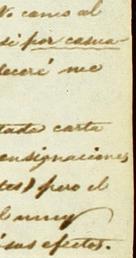 No como al
si por casua-
decerá me
tada carta
consignaciones
tes) pero el
l muy
sus efectos.